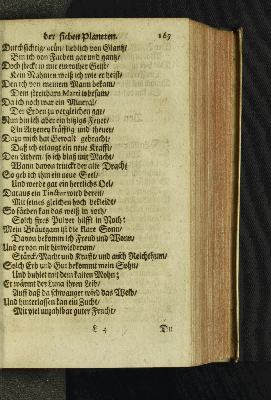 der sieben Planeten. 169
Durchsichtig/ grün/ lieblich von Glantz/
Bin ich von Farben gar und gantz/
Doch steckt in mir ein rother Geist/
Kein Nahmen weiß ich wie er heist/
Den ich von meinem Mann bekam/
Dem streitbarn Marti lobesam/
Da ich noch war ein Mineral/
Der Erden zu vergleichen gar/
Nun bin ich aber ein hitzigs Feuer/
Ein Artzeney kräfftig und theuer/
Dazu mich hat Gewalt gebracht/
Daß ich erlangt ein neue Krafft/
Den Athem/ so ich blaß mit Macht/
Wann davon trinckt der alte Drach/
So geb ich ihm ein neue Seel/
Und werde gar ein herrlichs Oel/
Daraus ein Tinctur wird bereit/
Mit seines gleichen hoch bekleidt/
So färben kan das weiß in roth/
Solch stets Pulver hilfft in Noth:
Mein Bräutgam ist die klare Sonn/
Davon bekomm ich Freud und Wonn/
Und er von mir hinwiederum/
Stärck/ Macht und Krafft/ und auch Reichthum/
Solch Erb und Gut bekommt mein Sohn/
Und buhlet mit dem kalten Mohn;
Er wärmet der Luna ihren Leib/
Auff daß da schwanger wird das Weib/
Und hinterlassen kan ein Zucht/
Mit viel unzahlbar guter Frucht/
L 4 Du